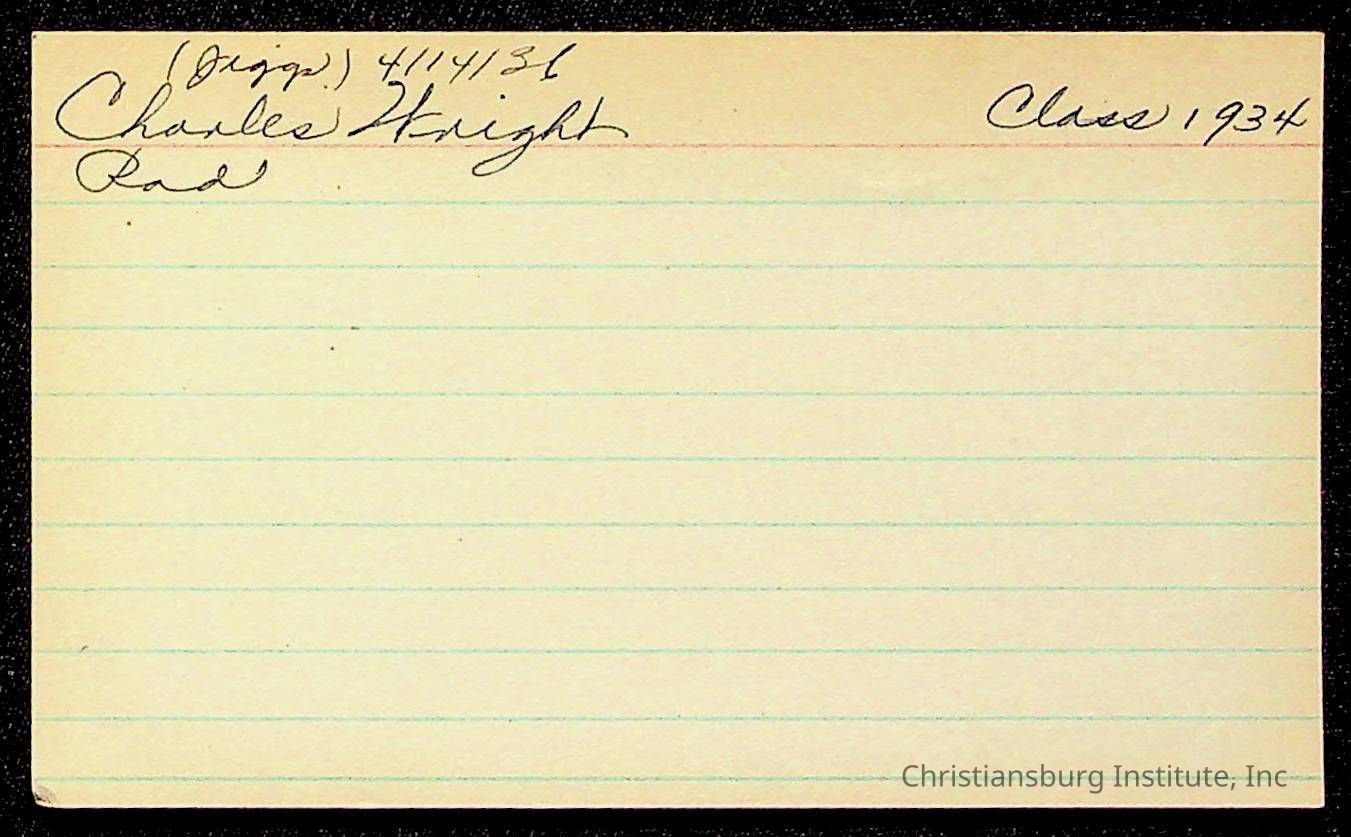 (Jiggs) 4/14/36
Charles Wright
Class 1934
Rad
Christiansburg Institute, Inc